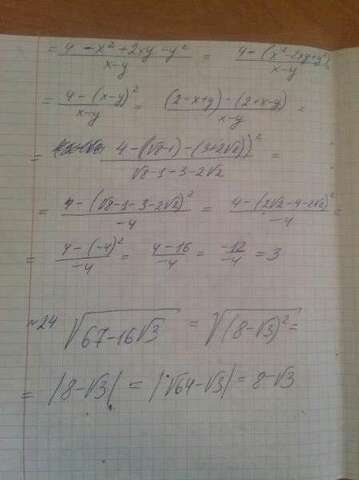 = (4 - x² + 2xy - y²)/(x-y) = (4 - (x² - 2xy + y²))/(x-y)
= (4 - (x-y)²)/(x-y) = ((2-x+y) - (2+x-y))/(x-y) =
= (4 - ((√8-1) - (3+2√2))²)/(√8-1-3-2√2) =
= (4 - (√8-1-3-2√2)²)/(-4) = (4 - (2√2-4-2√2)²)/(-4) =
= (4 - (-4)²)/(-4) = (4-16)/(-4) = (-12)/(-4) = 3
№24 √(67-16√3) = √((8-√3)²) =
= |8-√3| = |√64-√3| = 8-√3